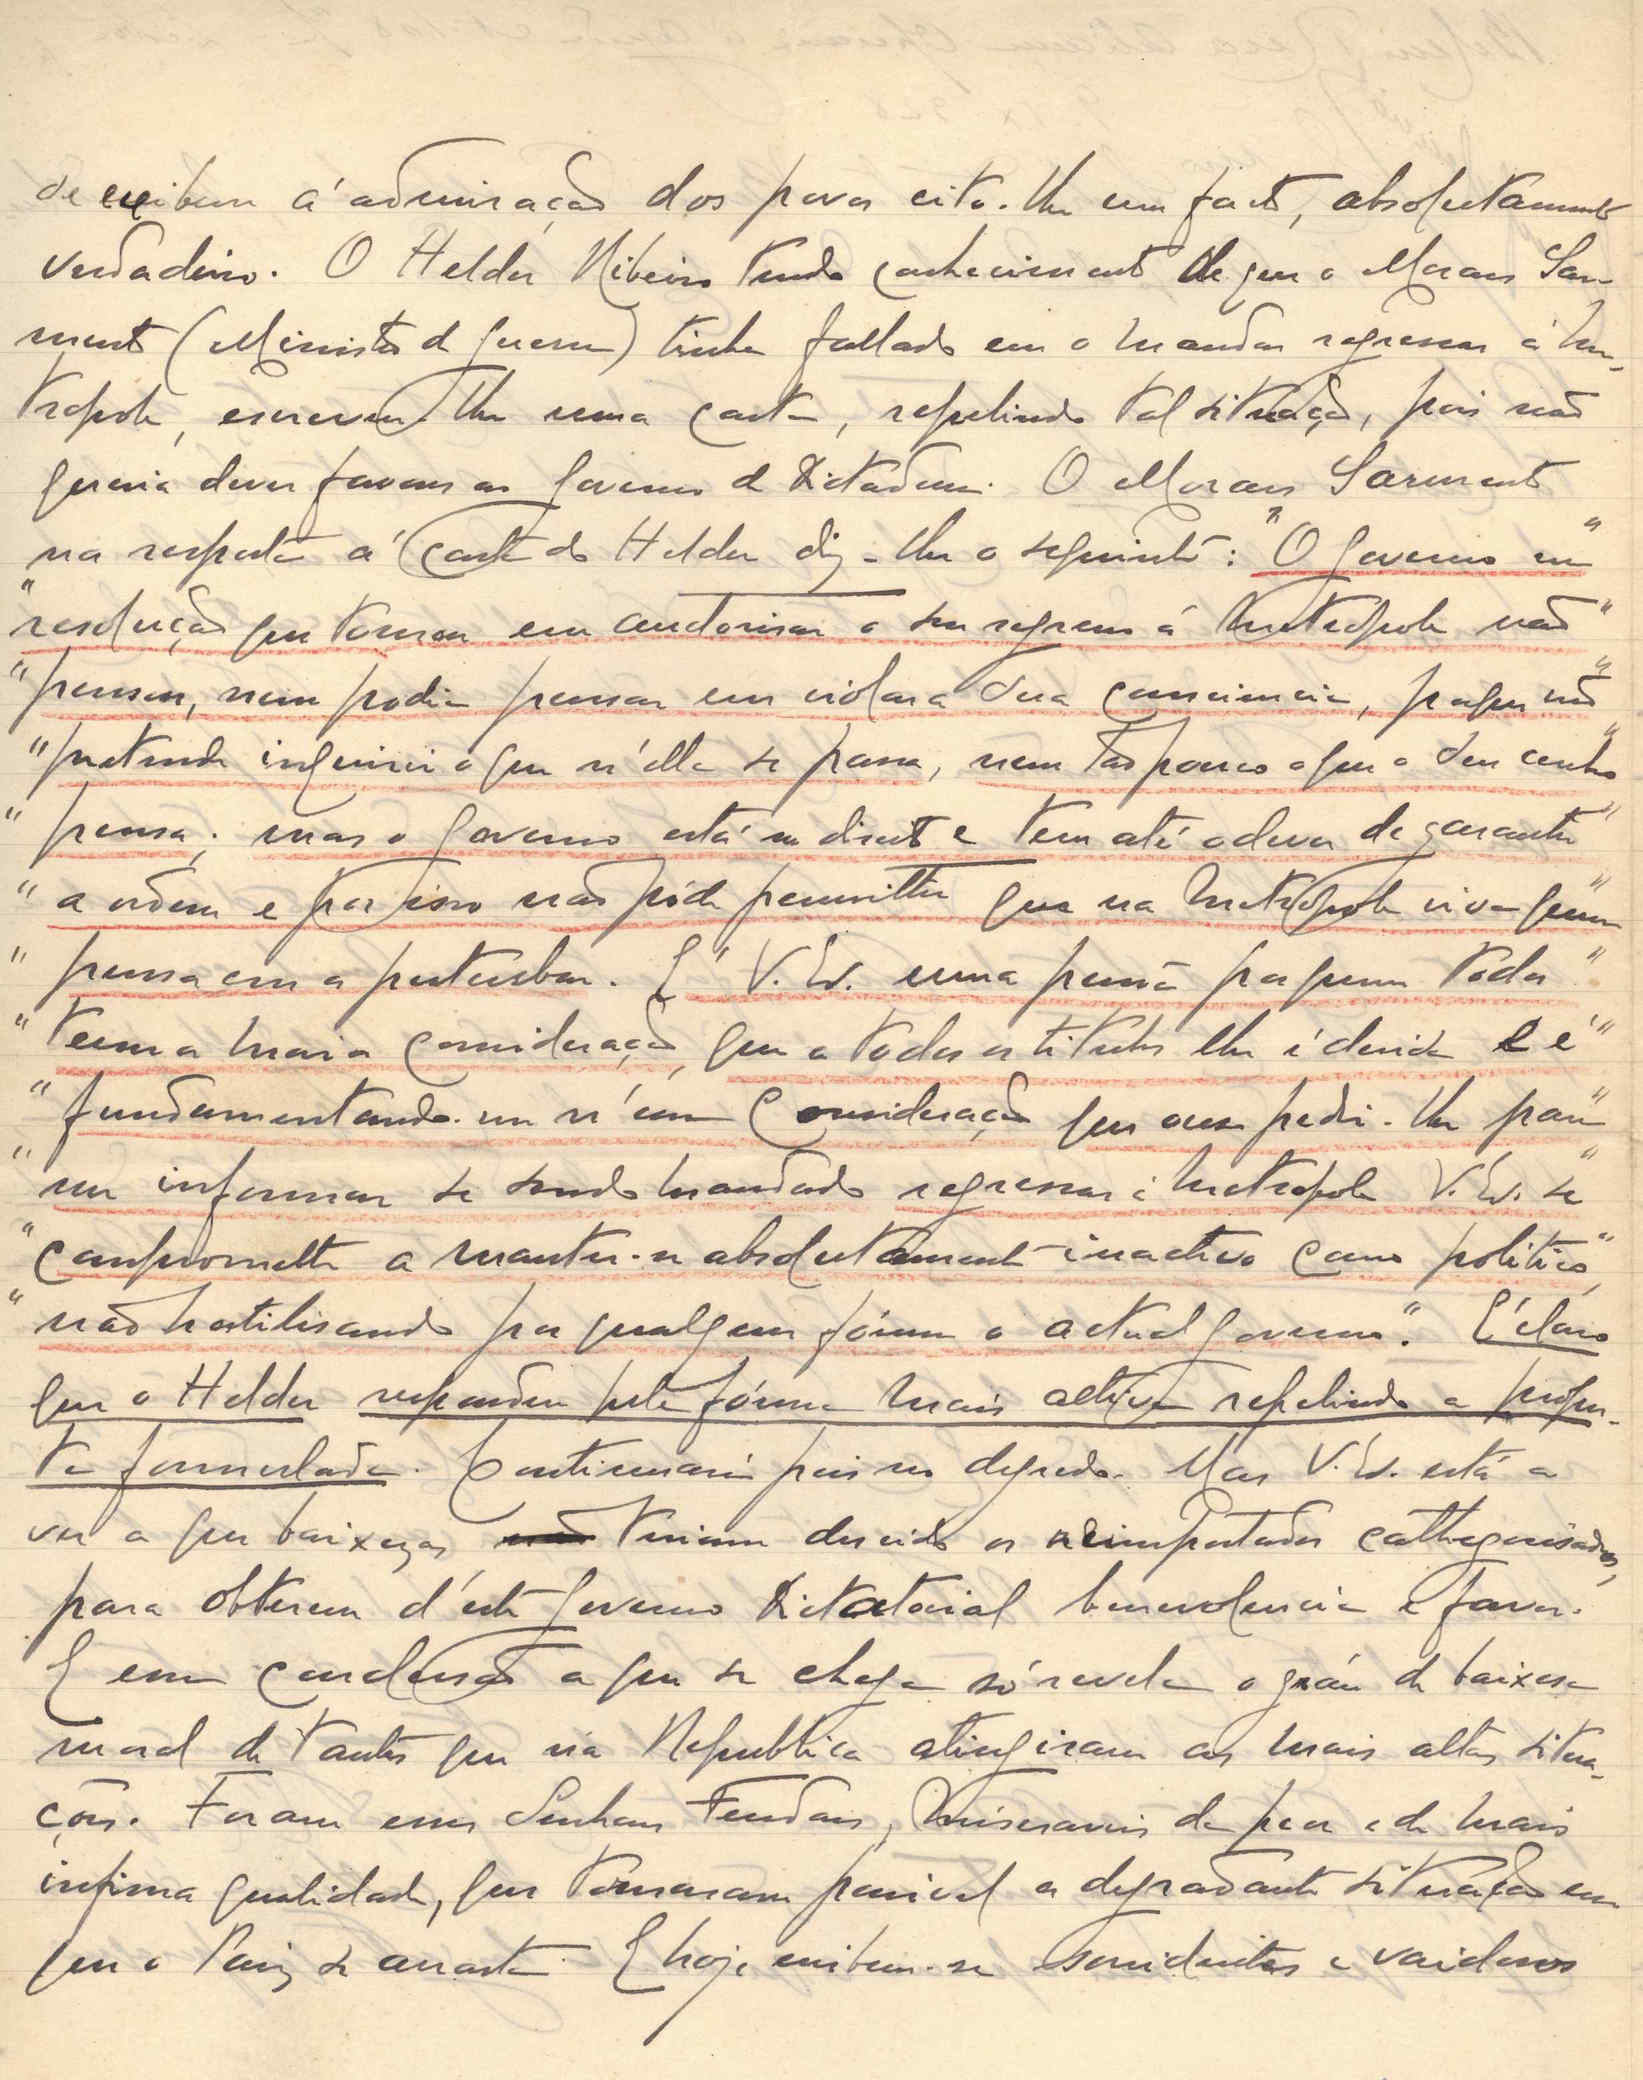 de exibem á admiração dos povos cito-lhe um facto, absolutamente
verdadeiro. O Helder Ribeiro tendo conhecimento de que o Moraes Sar-
mento (Ministro de guerra) tinha fallado em o mandar regressar á Me-
tropole, escreveu-lhe uma carta, repelindo tal situação, pois não
queria dever favores ao Governo de Dictadura. O Moraes Sarmento
na resposta á carta do Helder diz-lhe o seguinte: "O governo na"
"resolução que tomou em auctorisar o seu regresso á Metropole não"
"pensou, nem podia pensar em violar a sua consciencia, porque não"
"pretende inquirir o que n'ella se passa, nem tão pouco o que o seu cerebro"
"pensa; mas o governo está no direito e tem até o dever de garantir"
"a ordem e por isso não póde permittir que na Metropole viva quem"
"pensa em a perturbar. É V. Ex. uma pessoa por quem todos"
"teem a maior consideração, que a todos os titulos lhe é devida e é"
"fundamentando-me n'essa consideração que ouso pedir-lhe para"
"me informar se sendo mandado regressar á Metropole V. Ex. se"
"compromette a manter-se absolutamente inactivo como politico,"
"não hostilisando por qualquer fórma o actual governo". É claro
que o Helder respondeu pela fórma mais altiva repelindo a propos-
ta formulada. Continuará pois no degredo. Mas V. Ex. está a
ver a que baixezas teriam descido os reimportados cathegorisados,
para obterem d'este Governo Dictatorial benevolencia e favor.
E essa conclusão a que se chega só revela o gráu de baixesa
moral de tantos que na Republica atingiram as mais altas situa-
ções. Foram esses Senhores Feudaes, miseraveis da peor e da mais
infima qualidade, que tornaram possivel a degradante situação em
que o Paiz se arrasta. E hoje exibem-se sorridentes e vaidosos